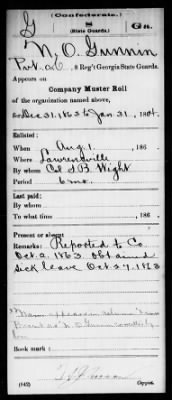 (Confederate.)
G 8 Ga.
(State Guards.)
N. O. Gunnin
Pvt, Co. 8 Reg't Georgia State Guards.
Appears on
Company Muster Roll
of the organization named above,
for Dec 31, 1863 to Jan 31, 1864.
Enlisted:
When Aug. 1, 186 .
Where Lawrenceville
By whom Col. J B. Wight
Period 6 mo.
Last paid:
By whom
To what time , 186 .
Present or absent
Remarks: Reported to Co.
Oct. 2, 1863. Obtained
sick leave Oct 27, 1863
Name appears in column Names
Present as N. O. Gunnin
Book mark:
(642) Copyist.